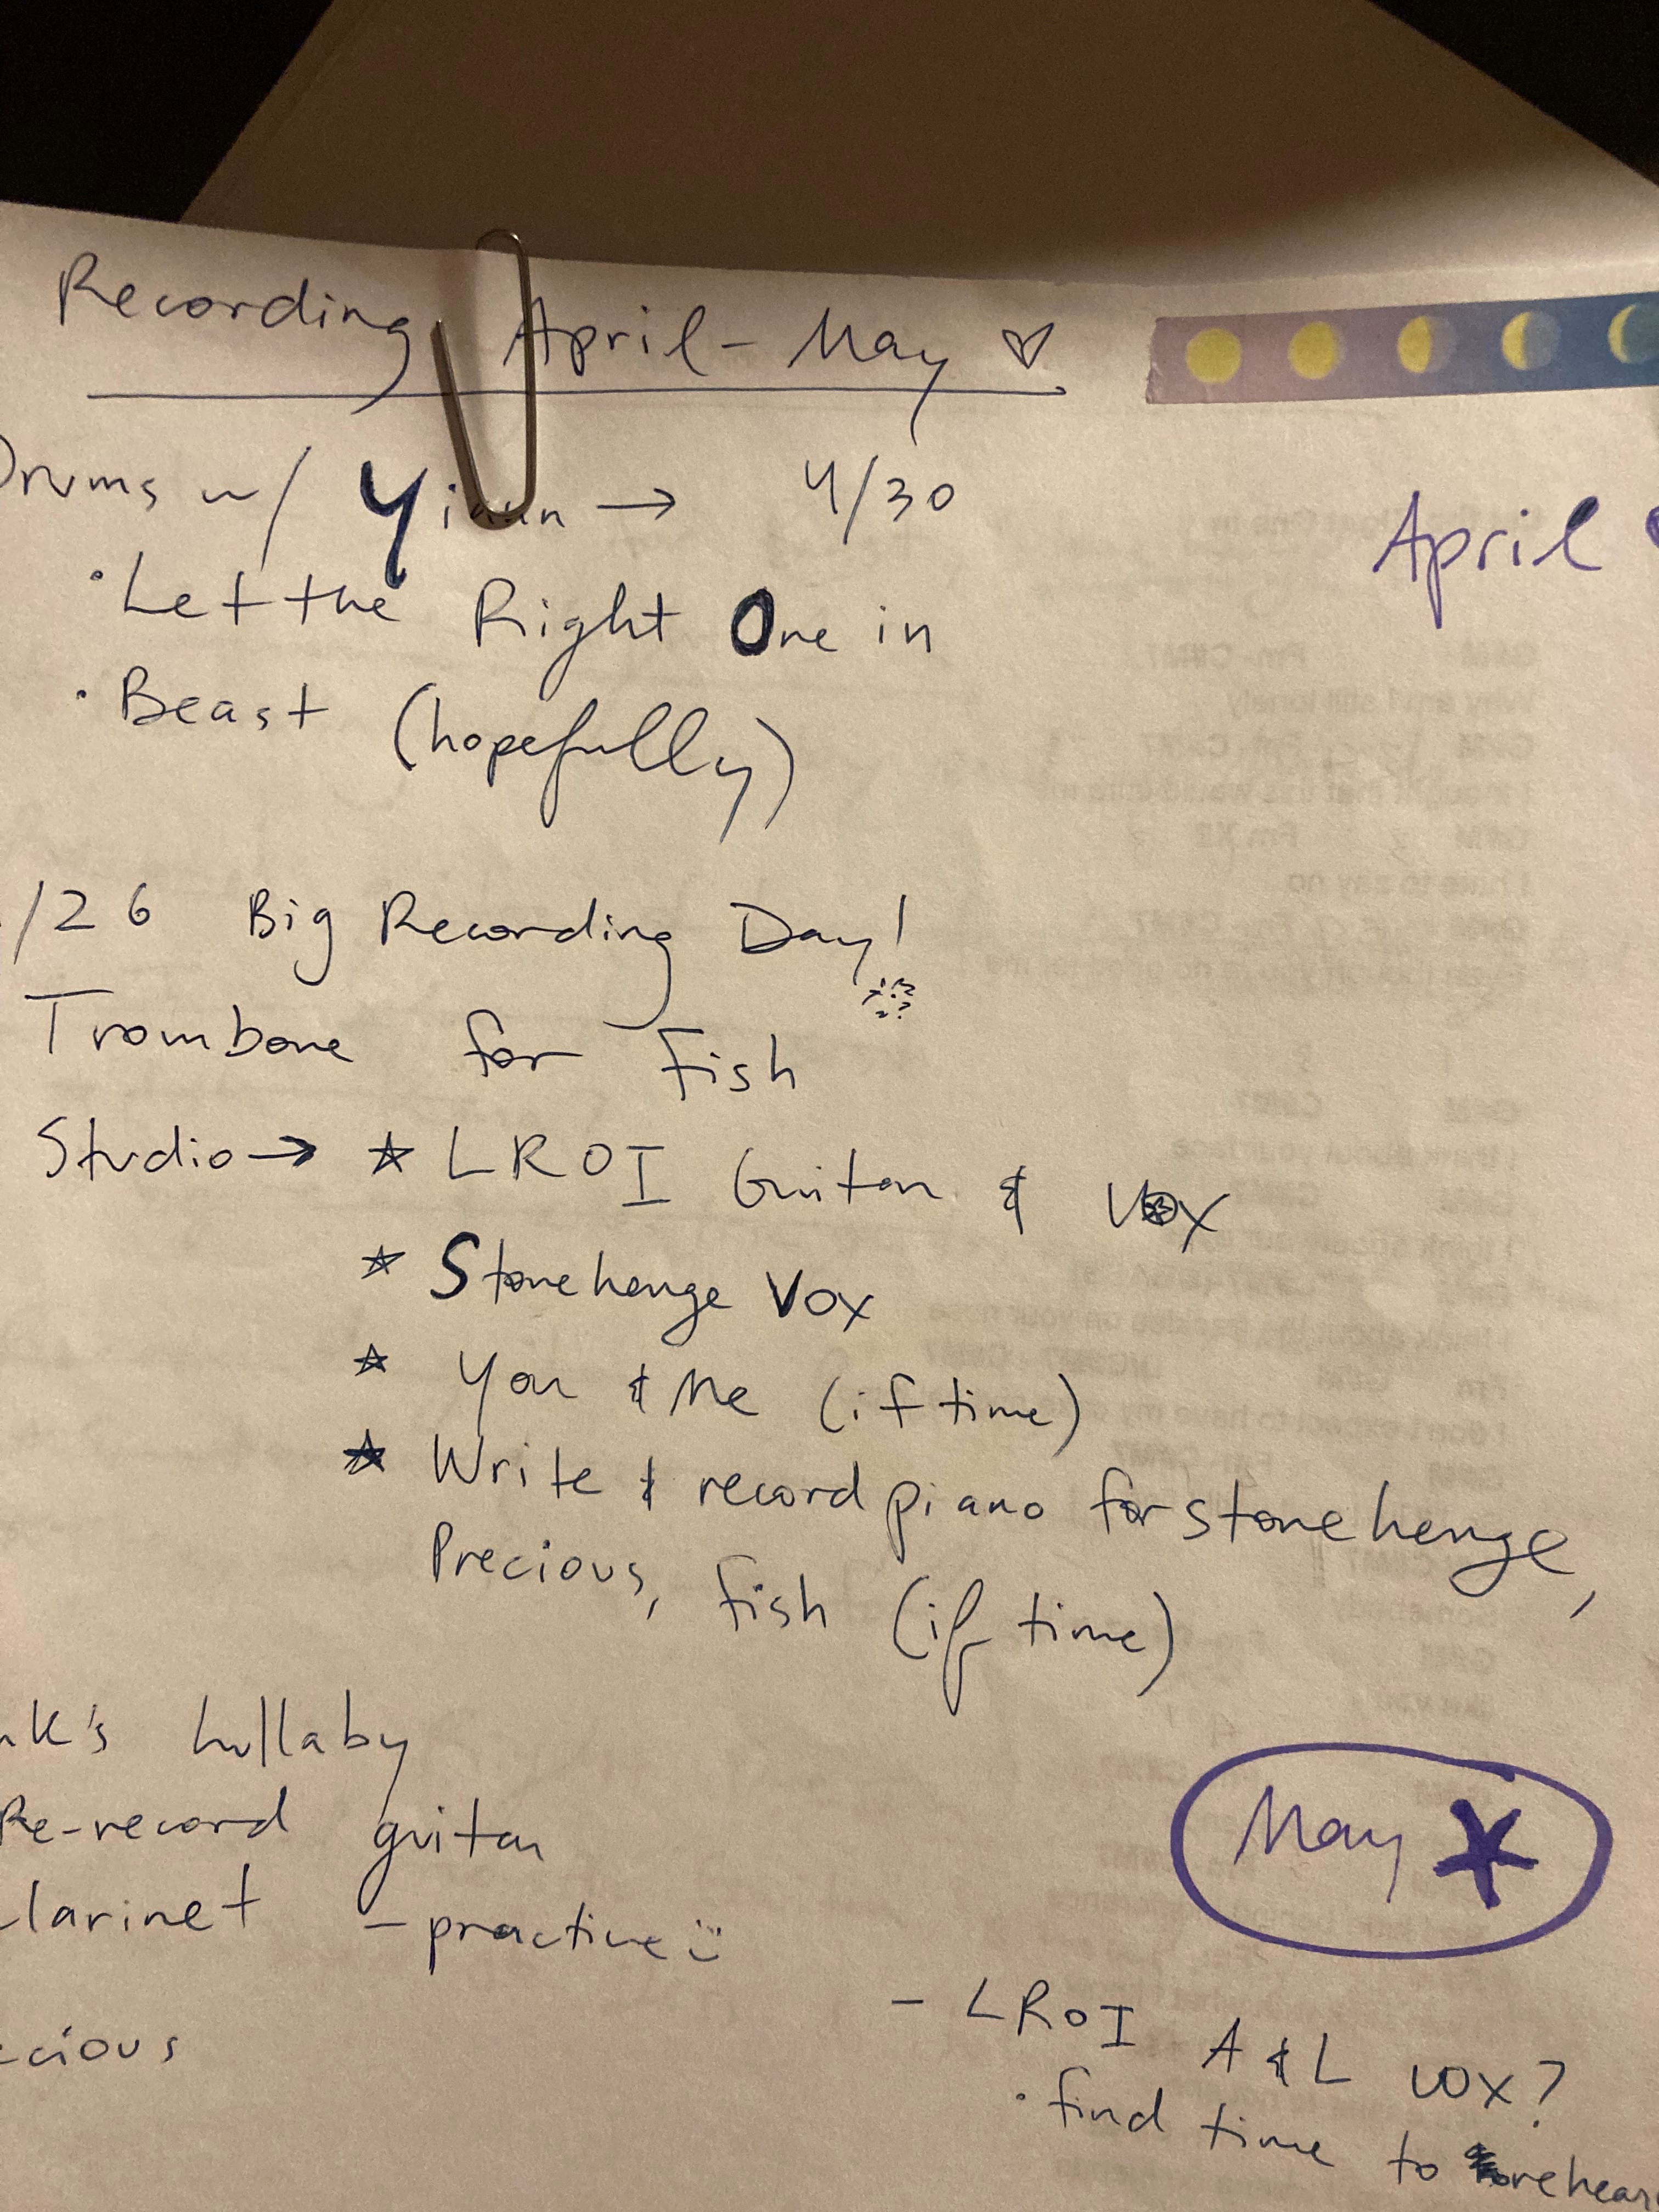 Recording April - May ♡
Drums w/ → 4/30
April
· Let the Right One in
· Beast (hopefully)
/26 Big Recording Day!
Trombone for Fish
Studio → ☆ LROI Guitar & vox
☆ Stonehenge Vox
☆ You & Me (if time)
☆ Write & record piano for stonehenge,
Precious, fish (if time)
nk's lullaby
Re-record guitar
clarinet - practice :)
May *
ecious
- LROI A & L vox?
· find time to rehear